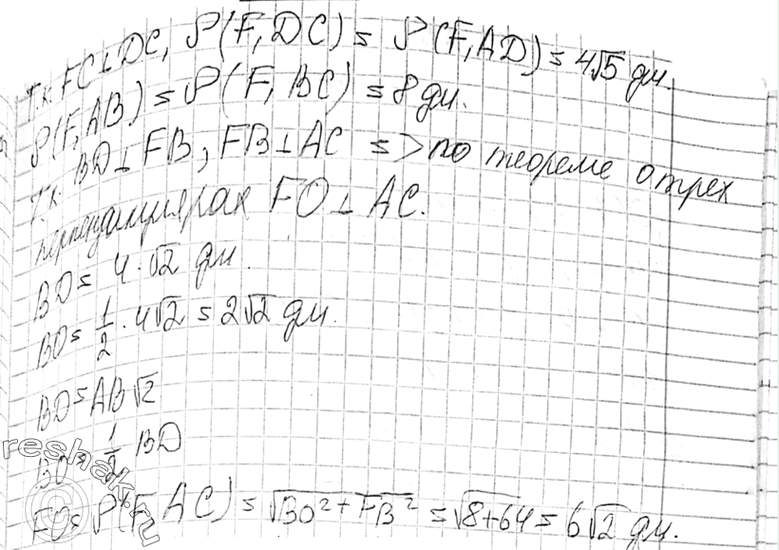 Т.к. FC⊥DC, ρ(F, DC) = ρ(F, AD) = 4√5 дм.
ρ(F, AB) = ρ(F, BC) = 8 дм.
Т.к. BD⊥FB, FB⊥AC => по теореме о трех
перпендикулярах FO⊥AC.
BD = 4·√2 дм.
BO = 1/2 · 4√2 = 2√2 дм.
BD = AB√2
BO = 1/2 BD
FO = ρ(F, AC) = √BO² + FB² = √8+64 = 6√2 дм.
reshak.ru